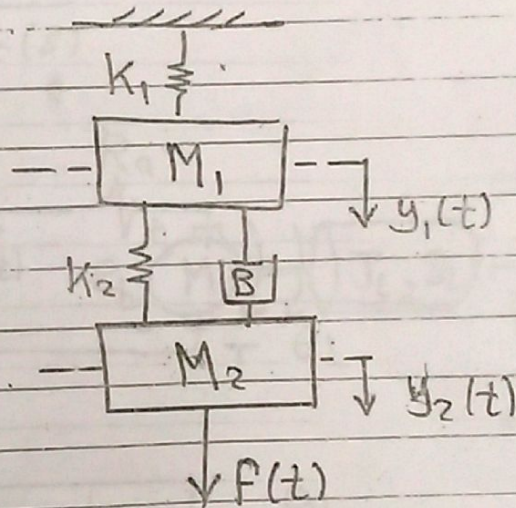 K₁
M₁
y₁(t)
K₂ B
M₂
y₂(t)
f(t)